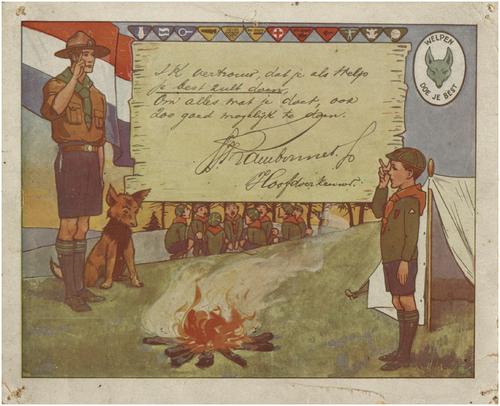 Ik vertrouw, dat je als Welp
je best zult doen.
Om alles wat je doet, ook
zoo goed mogelijk te doen.
Rambonnet
Hoofdverkenner.
WELPEN
DOE JE BEST